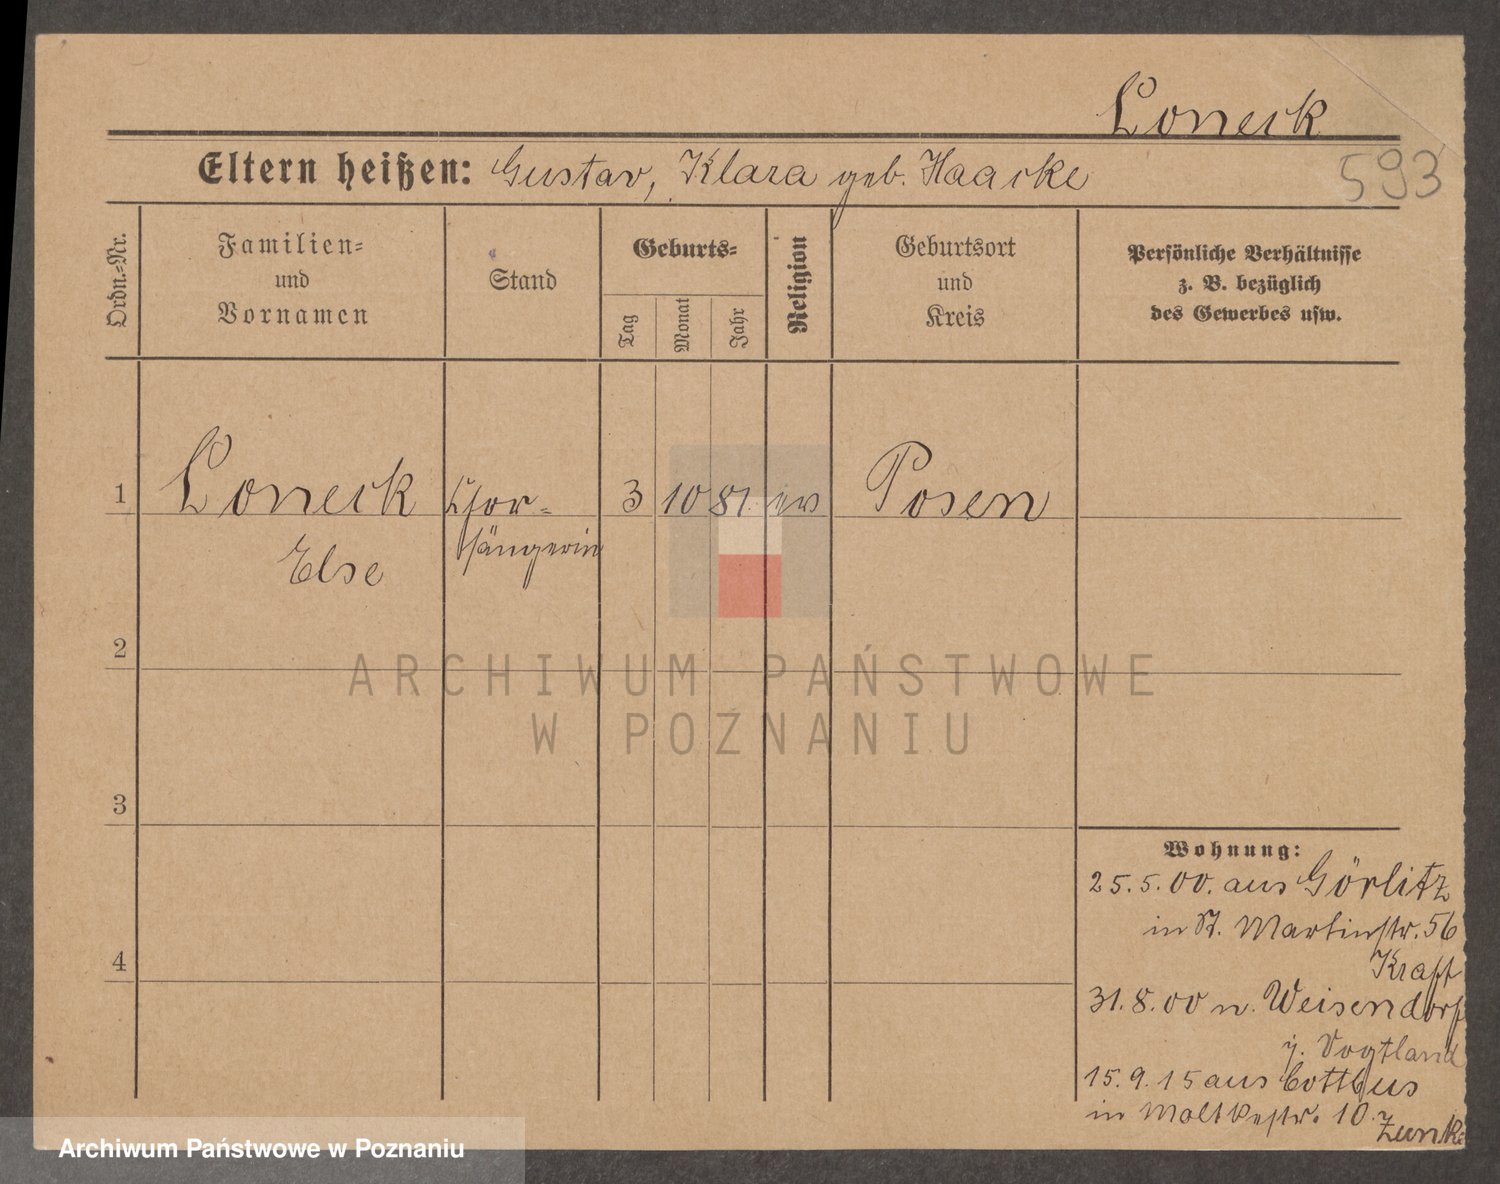 Loneck
Eltern heißen: Gustav, Klara geb. Haacke
593
Ordn.=Nr.
Familien=
und
Vornamen
Stand
Geburts=
Tag
Monat
Jahr
Religion
Geburtsort
und
Kreis
Persönliche Verhältnisse
z. B. bezüglich
des Gewerbes usw.
1 Loneck Chor= 3 10 81. ev Posen
Else sängerin
2
3
4
Wohnung:
25.5.00. aus Görlitz
in St. Martinstr. 56
Kraft
31.8.00 n. Weisendorf
i. Vogtland
15.9.15 aus Cottbus
in Moltkestr. 10.
ARCHIWUM PAŃSTWOWE
W POZNANIU
Archiwum Państwowe w Poznaniu